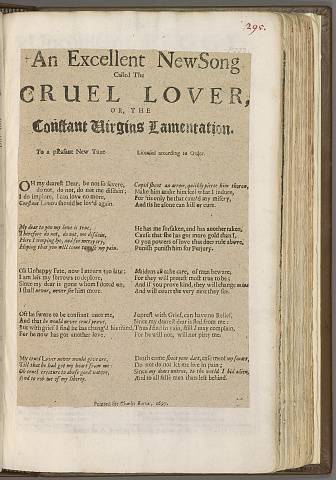 295.
An Excellent New Song
Called The
CRUEL LOVER,
OR, THE
Constant Virgins Lamentation.
To a pleasant New Tune
Licensed according to Order.
OH my dearest Dear, be not so severe,
do not, do not, do not me disdain;
I do implore, I can love no more,
Constant Lovers should be lov'd again.
My dear to you my love is true,
Therefore do not, do not, me disdain,
Here I weeping lye, and for mercy cry,
Hoping that you will come my pain.
Oh Unhappy Fate, now I am too late;
I am left my sorrows to deplore,
Since my dear is gone whom I doted on,
I shall never, never see him more.
Oh be so severe to be constant unto me,
And that he would never cruel prove,
But with grief I find he has chang'd his mind,
For he now has got another love.
My cruel Lover never would give ore,
Till that he had got my heart from me:
Oh cruel creature to abuse good nature,
And to rob me of my liberty.
Cupid shoot an arrow, quickly pierce him thorow,
Make him under him feel what I indure,
For 'tis only he that caus'd my misery,
And tis he alone can kill or cure.
He has me forsaken, and has another taken,
Cause that she has got more gold than I,
O you powers of love that does rule above,
Punish punish him for Perjury.
Maidens all take care, of men beware,
For they will prove most true to be;
And if you prove kind, they will change mind
And will court the very next they see.
Opprest with Grief, can have no Relief,
Since my dearest dear is fled from me:
Thus I find in vain, still I may complain,
For he will not, will not pity me.
Death come shoot your dart, ease me of my smart,
Do not do not let me live in pain;
Since my dears untrue, to the world I bid adieu,
And to all false men then left behind.
Printed for Charles Barnet, 1697.